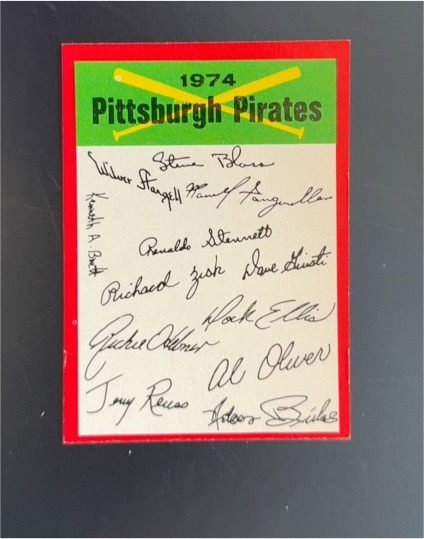 1974
Pittsburgh Pirates
Steve Blass
Wilver Stargell
Manny Sanguillen
Kenneth A. Brett
Renaldo Stennett
Richard Zisk
Dave Giusti
Dock Ellis
Richie Hebner
Al Oliver
Jerry Reuss